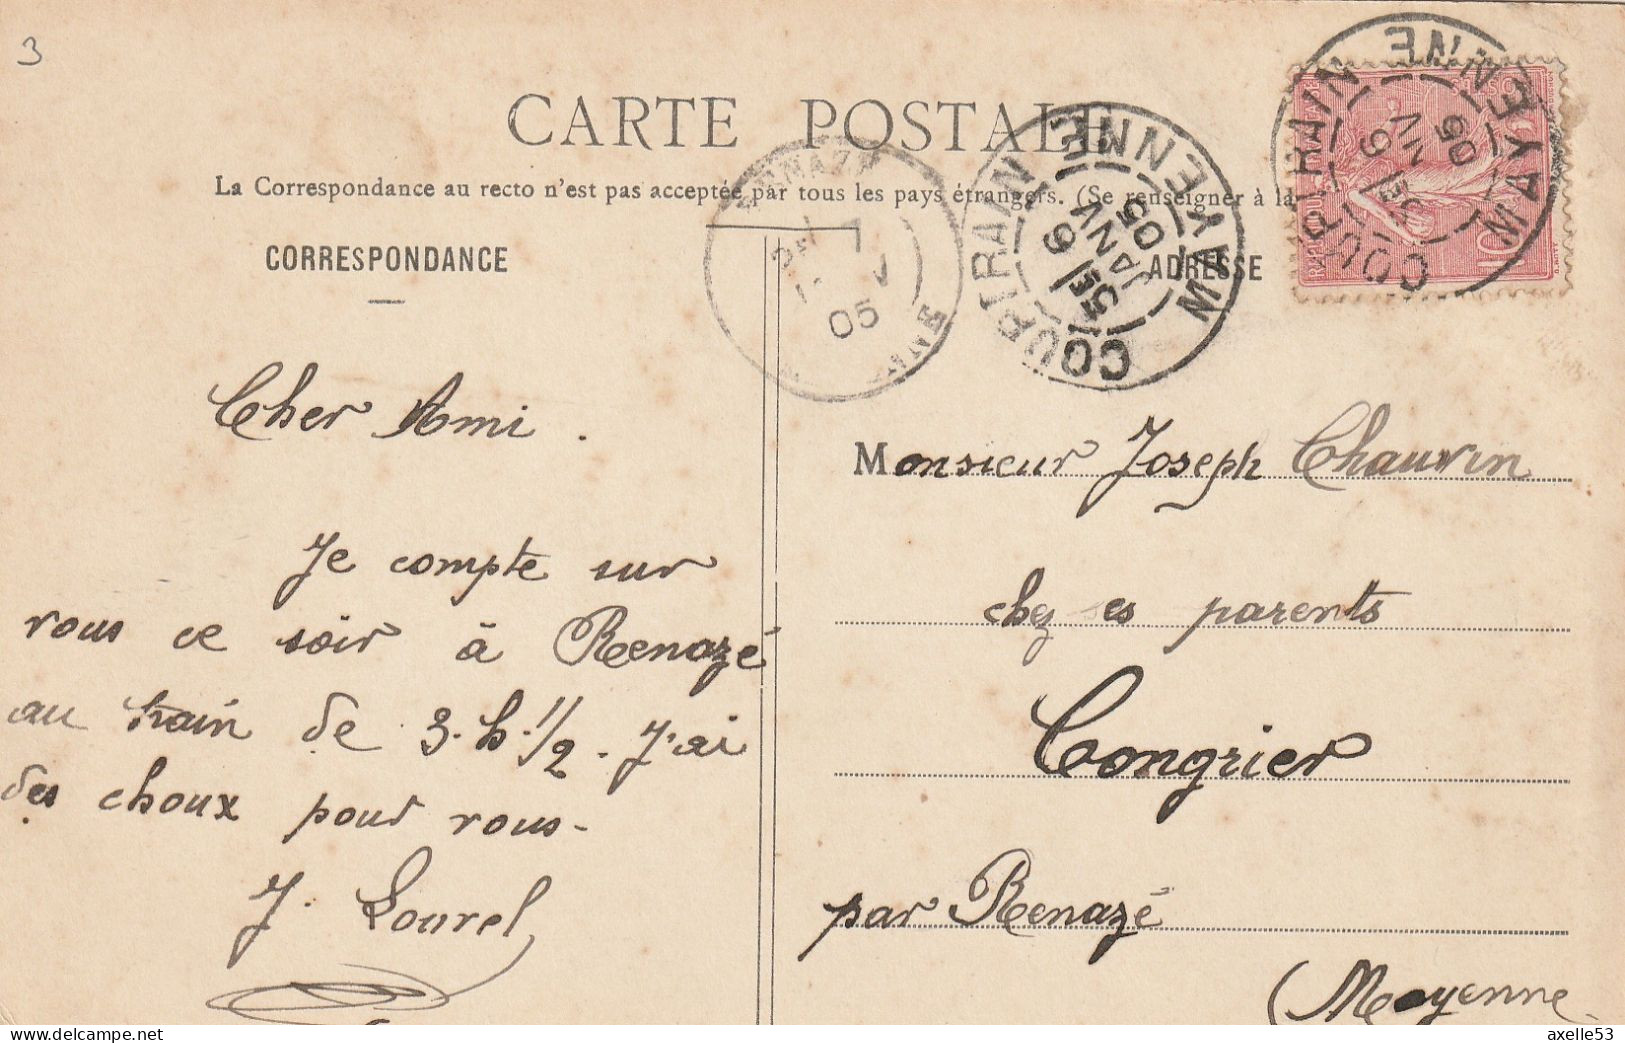 3
CARTE POSTALE
La Correspondance au recto n'est pas acceptée par tous les pays étrangers. (Se renseigner à la
CORRESPONDANCE
ADRESSE
COUPTRAIN MAYENNE
5E
6
JANV
05
COUPTRAIN MAYENNE
5E
6
NV
05
05
10
Cher Ami.
Je compte sur
vous ce soir à Renazé
au train de 3.h.1/2. J'ai
des choux pour vous-
J.
Monsieur Joseph Chauvin
chez ses parents
Congrier
par Renazé
(Mayenne
axelle53